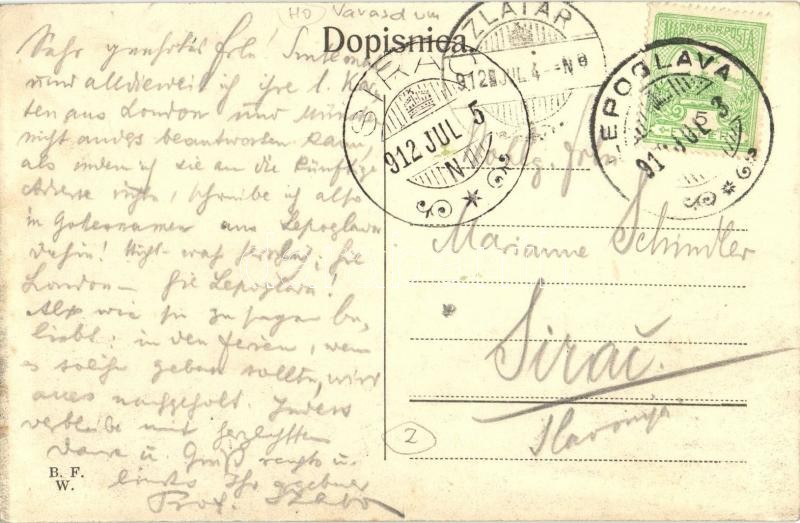 HO Varasd vm
Dopisnica.
ZLATAR
912 JUL 4 N8
SIRAČ
912 JUL 5
N
LEPOGLAVA
912 JUL 3
MAGYAR KIR. POSTA
5
Sehr geehrtes Frl.!
und alldieweil ich ihre l. Kar
ten aus London und
nicht anders beantworten kann,
als indem ich sie an die künftige
Adresse richte, schreibe ich also
in Gottesnamen aus Lepoglava
dahin! Nicht wahr herrlich; hie
London – hie Lepoglava!
Also wie sie zu sagen be
liebt: in den Ferien, wenn
es solche geben sollte, wird
alles nachgeholt. Indess
verbleibe mit herzlichstem
Dank u. Gruß rechts u.
links Ihr ergebener
Prof. Szabo
Marianne Schindler
Sirač
Slavonija
2
B. F.
W.